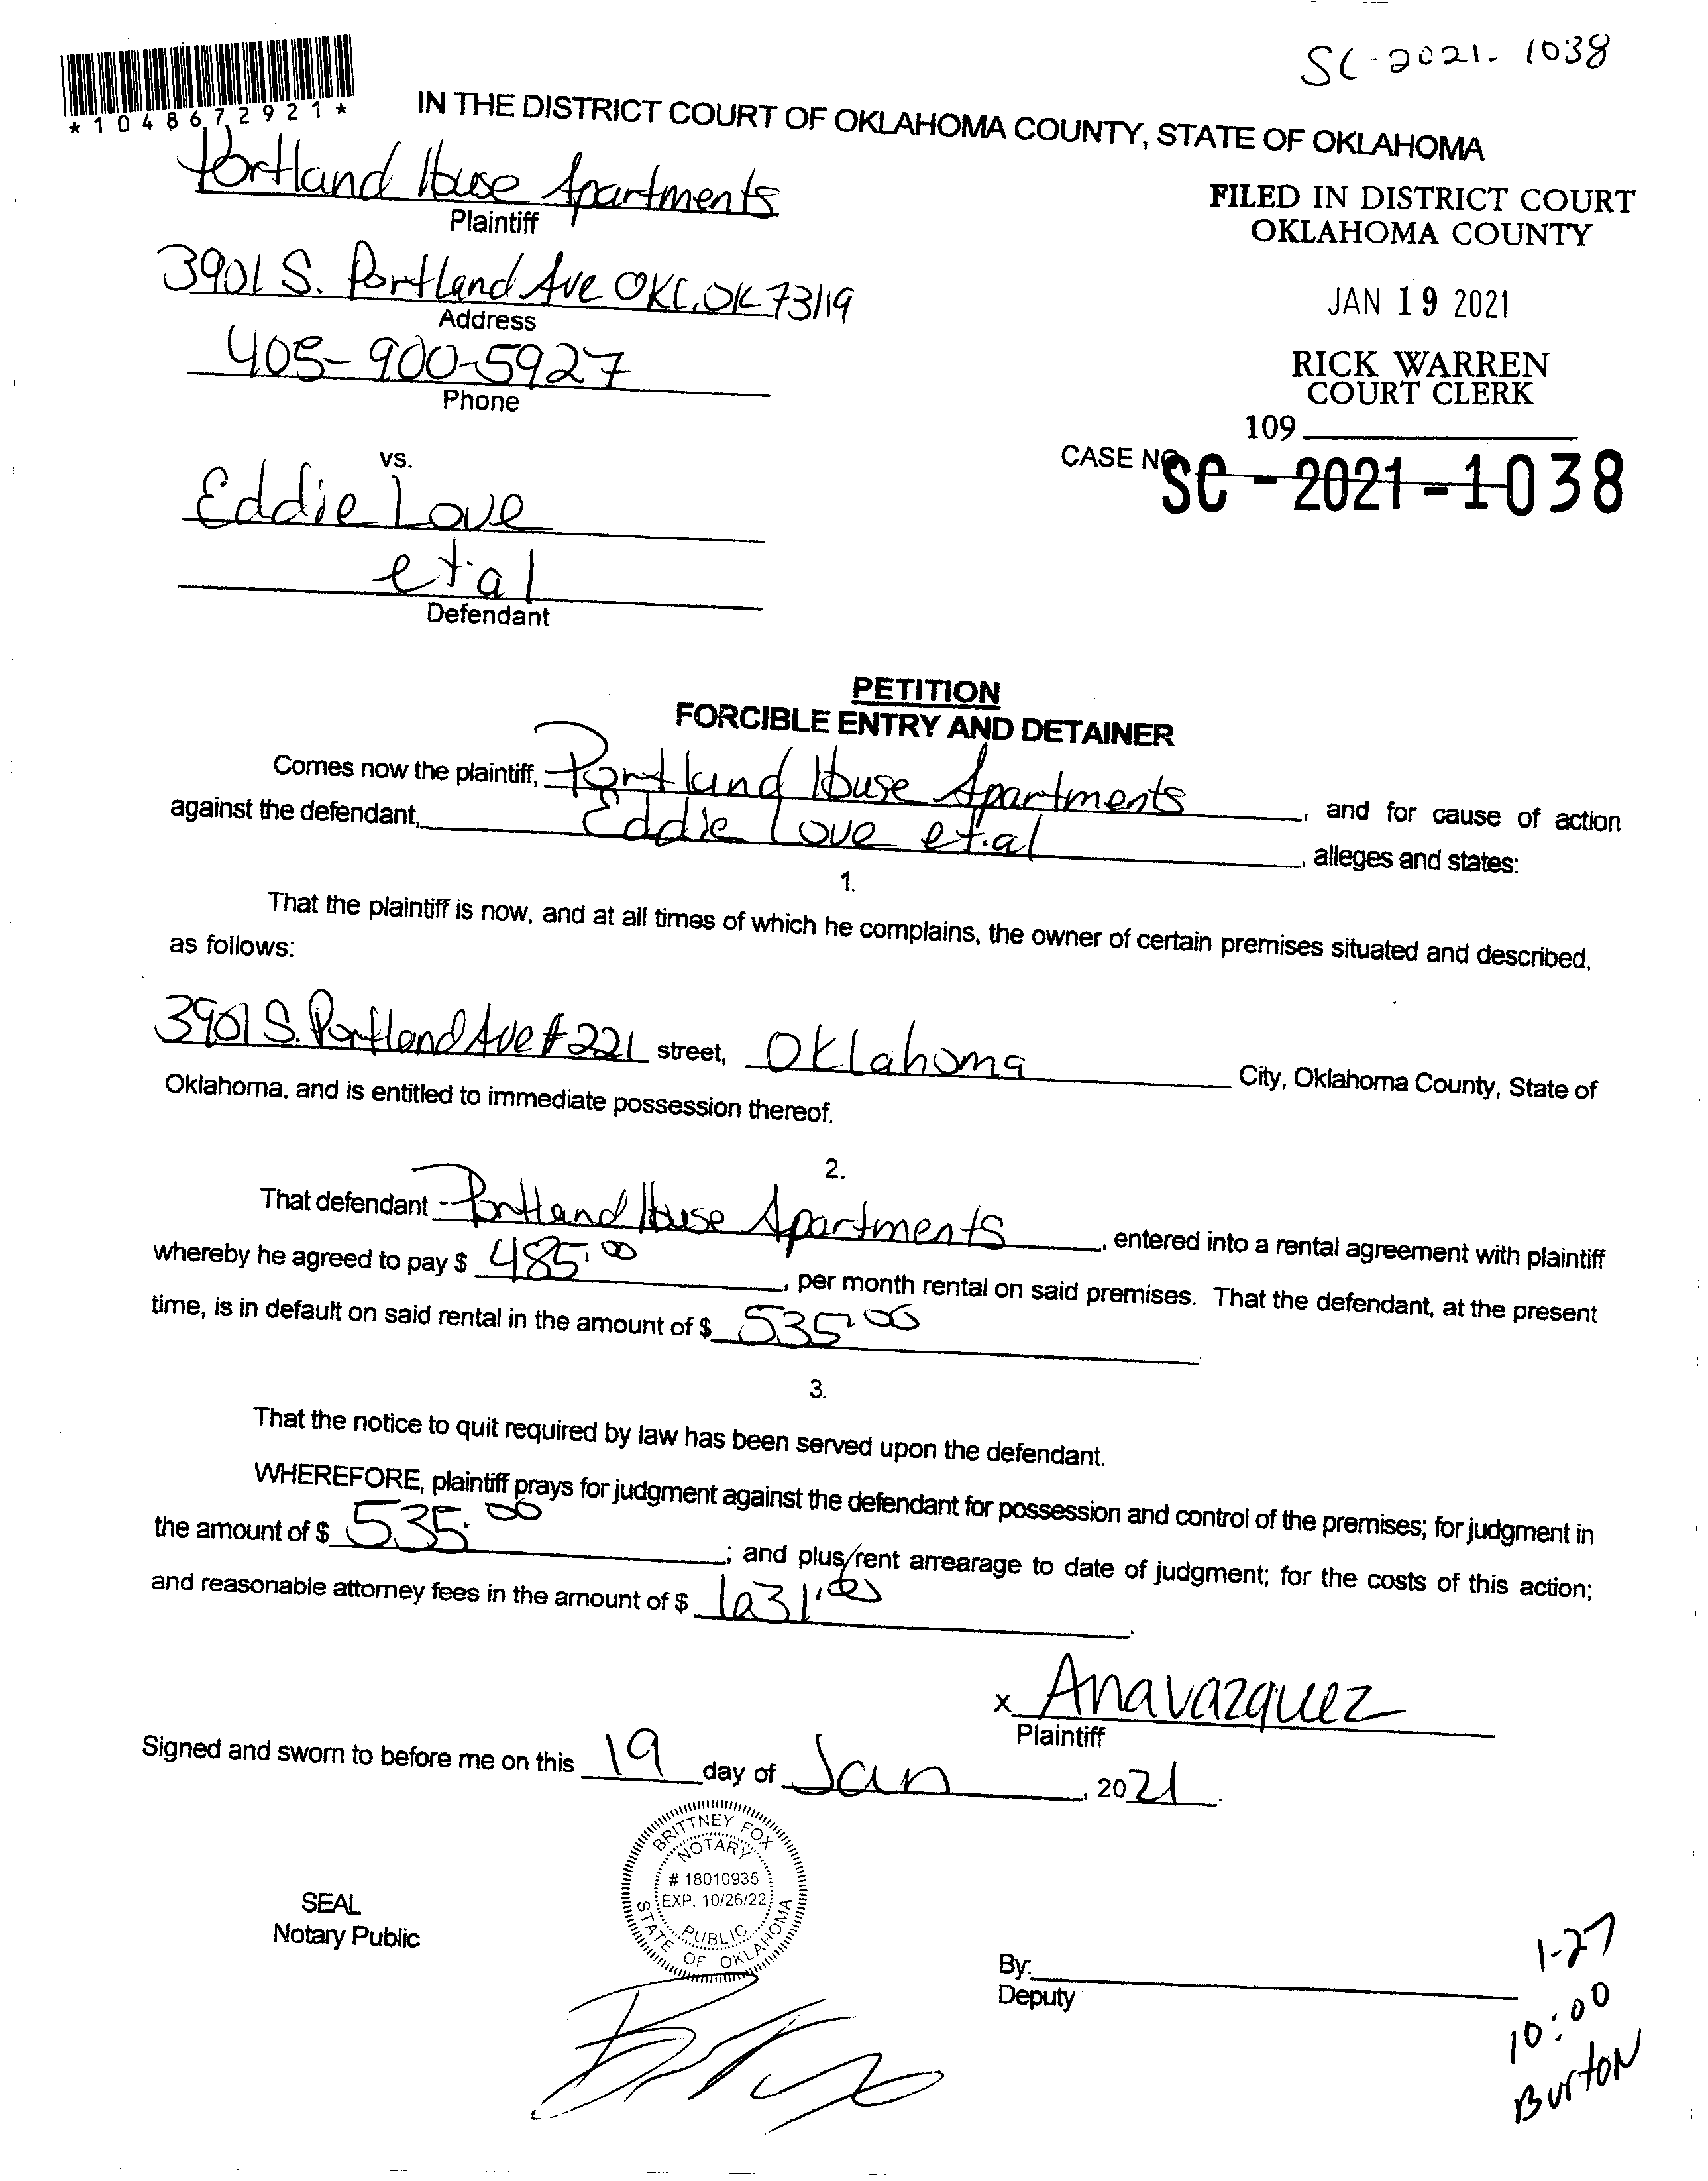 SC-2021-1038
*1048672921*
IN THE DISTRICT COURT OF OKLAHOMA COUNTY, STATE OF OKLAHOMA
Portland House Apartments
Plaintiff
FILED IN DISTRICT COURT
OKLAHOMA COUNTY
3901 S. Portland Ave OKC, OK 73119
Address
JAN 19 2021
405-900-5927
Phone
RICK WARREN
COURT CLERK
109
CASE NO. SC-2021-1038
vs.
Eddie Love
et.al
Defendant
PETITION
FORCIBLE ENTRY AND DETAINER
Comes now the plaintiff, Portland House Apartments, and for cause of action
against the defendant, Eddie Love et.al, alleges and states:
1.
That the plaintiff is now, and at all times of which he complains, the owner of certain premises situated and described,
as follows:
3901 S. Portland Ave # 221 street, Oklahoma City, Oklahoma County, State of
Oklahoma, and is entitled to immediate possession thereof.
2.
That defendant Portland House Apartments, entered into a rental agreement with plaintiff
whereby he agreed to pay $ 485.00, per month rental on said premises. That the defendant, at the present
time, is in default on said rental in the amount of $ 535.00.
3.
That the notice to quit required by law has been served upon the defendant.
WHEREFORE, plaintiff prays for judgment against the defendant for possession and control of the premises; for judgment in
the amount of $ 535.00; and plus/rent arrearage to date of judgment; for the costs of this action;
and reasonable attorney fees in the amount of $
x Ana Vazquez
Plaintiff
Signed and sworn to before me on this 19 day of Jan, 2021.
BRITTNEY FOX
NOTARY
# 18010935
EXP. 10/26/22
PUBLIC
STATE OF OKLAHOMA
SEAL
Notary Public
By:
Deputy
1-27
10:00
Burton